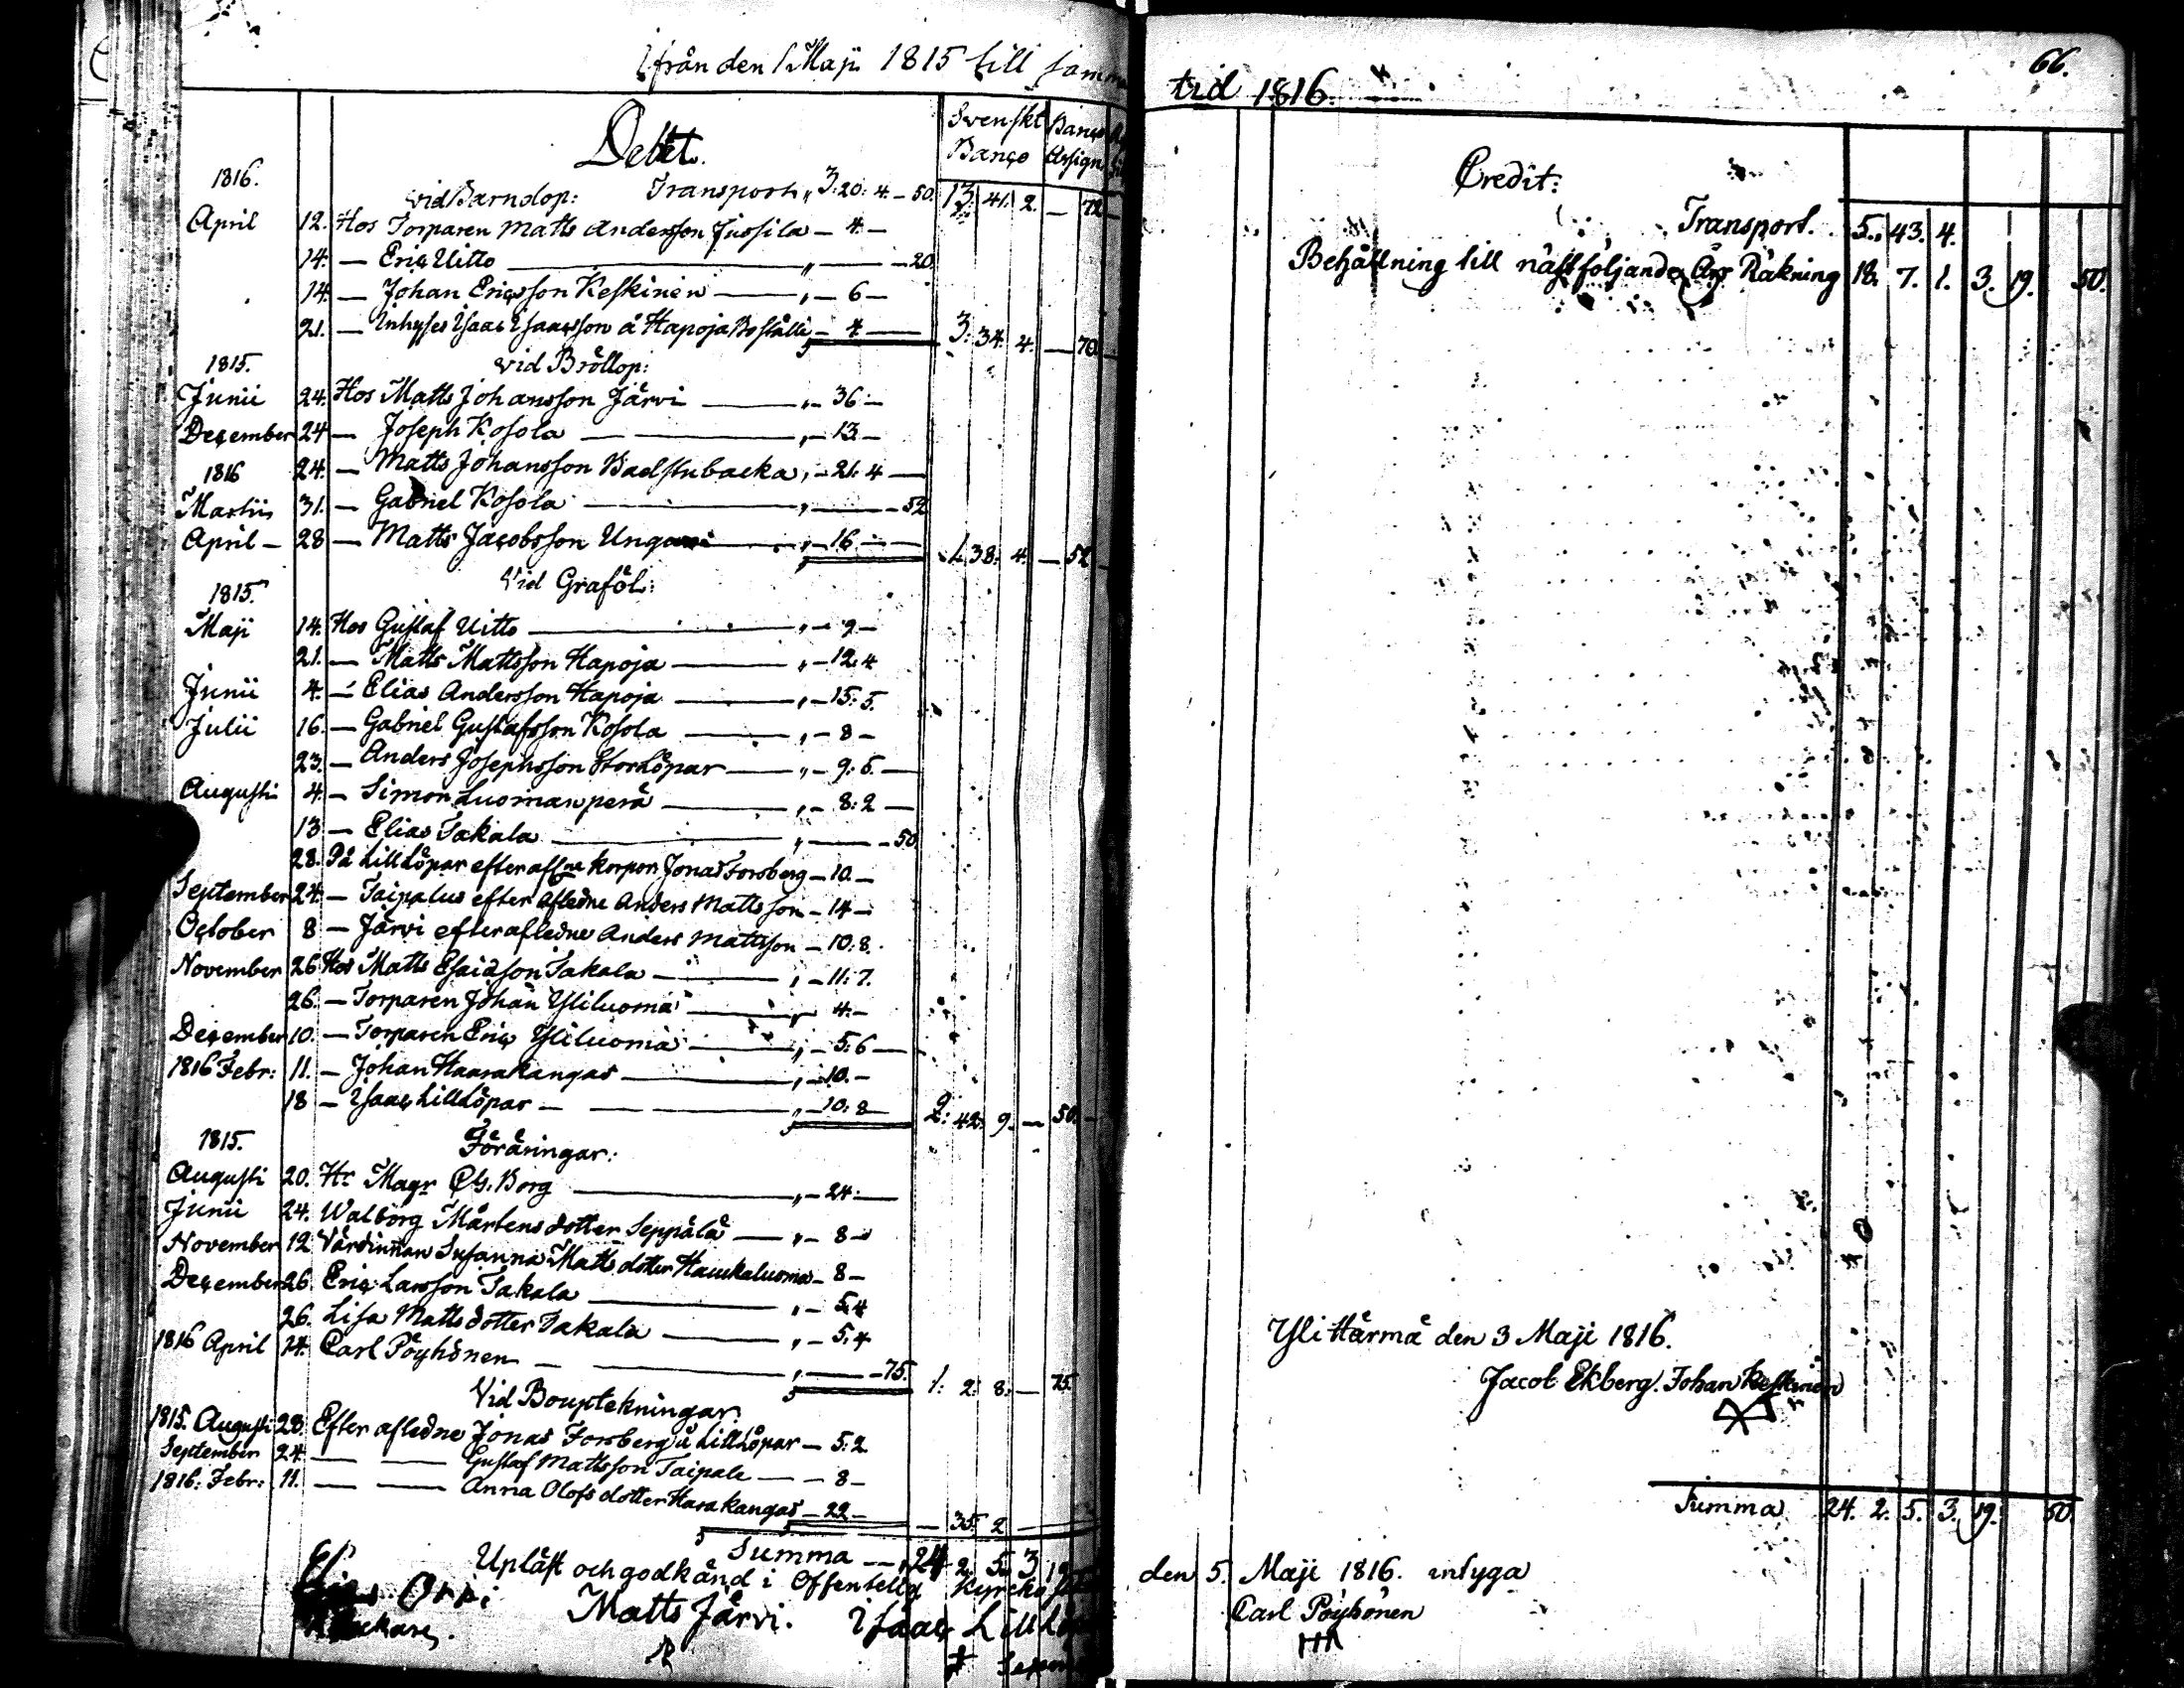 Ifrån den 1 Maji 1815 till samma
Debet. Svenskt Banço Banço Assign.
1816. vid Barndop: Transport „ 3: 20: 4. - 50. 13. 41. 2. - 72
April 12. Hos Torparen Matts Andersson Jussila - 4 -
14. - Eriç Uitto „ - 20.
14. - Johan Ericsson Keskinen „ - 6 -
21. - Inhyses Isaac Isaacsson å Hapoja Boställe - 4 - 3: 34. 4. - 70.
1815. vid Bröllop:
Junii 24. Hos Matts Johansson Järvi „ - 36 -
Deçember 24 - Joseph Kosola „ - 13 -
1816 24. - Matts Johansson Badstubacka „ - 21: 4 -
Martii 31. - Gabriel Kosola „ - 52
April - 28 - Matts Jacobsson „ - 16 - 1. 38: 4. - 52
1815. Vid Graföl:
Maji 14. Hos Gustaf Uitto „ - 9 -
21. - Matts Mattsson Hapoja „ - 12: 4
Junii 4. - Elias Andersson Hapoja „ - 15: 5.
Julii 16. - Gabriel Gustafsson Kosola „ - 8 -
23. - Anders Josephsson StorLöpar „ - 9: 5. -
Augusti 4. - Simon Luomanperä „ - 8: 2 -
13 - Elias Takala „ - 50
28. På LillLöpar efter afl:ne Korpor. Jonas Forsberg - 10. -
September 24. - Taipalus efter Afledne Anders Mattsson - 14 -
October 8 - Järvi efter afledne Anders Mattsson - 10: 8.
November 26 Hos Matts Esaiasson Takala „ - 11: 7.
26. - Torparen Johan Yliluoma „ 4. -
Deçember 10. - Torparen Eriç Yliluoma „ - 5: 6 -
1816 Febr: 11. - Johan Haarakangas „ - 10. -
18 - Isaaç LillLöpar - „ - 10: 8 2: 42: 9. - 50. -
1815. Föräringar:
Augusti 20. Hr Magr Borg „ - 24: -
Junii 24. Walborg Mårtensdotter Seppälä „ - 8 -
November 12 Värdinnan Susanna Mattsdotter Haukaluoma - 8 -
Deçember 26. Eriç Larsson Takala „ - 5: 4
26. Lisa Mattsdotter Takala „ - 5: 4
1816 April 14. Carl Pöyhönen - „ - 75. 1: 2: 8: - 75.
Vid Bouptekningar:
1815. Augusti 28. Efter afledne Jonas Forsberg å LillLöpar - 5: 2
September 24. - - Gustaf Mattsson Taipale - 8 -
1816: Febr: 11. - - Anna Olofsdotter Harakangas - 22 - - 35. 2
Summa - „ 24 2. 5. 3 19
Upläst och godkänd i Offentelig Kyrcko
Orri Matts Järvi. Isaaç LillLö
tid 1816. 66.
Credit:
Transport. 5. 43. 4.
Behållning till nästföljande Års Räkning 18. 7. 1. 3. 19. 50.
Yli Härmä den 3 Maji 1816.
Jacob Ekberg. Johan Keskinen
Summa 24. 2. 5. 3. 19. 50.
den 5. Maji 1816. intyga
Carl Pöyhönen